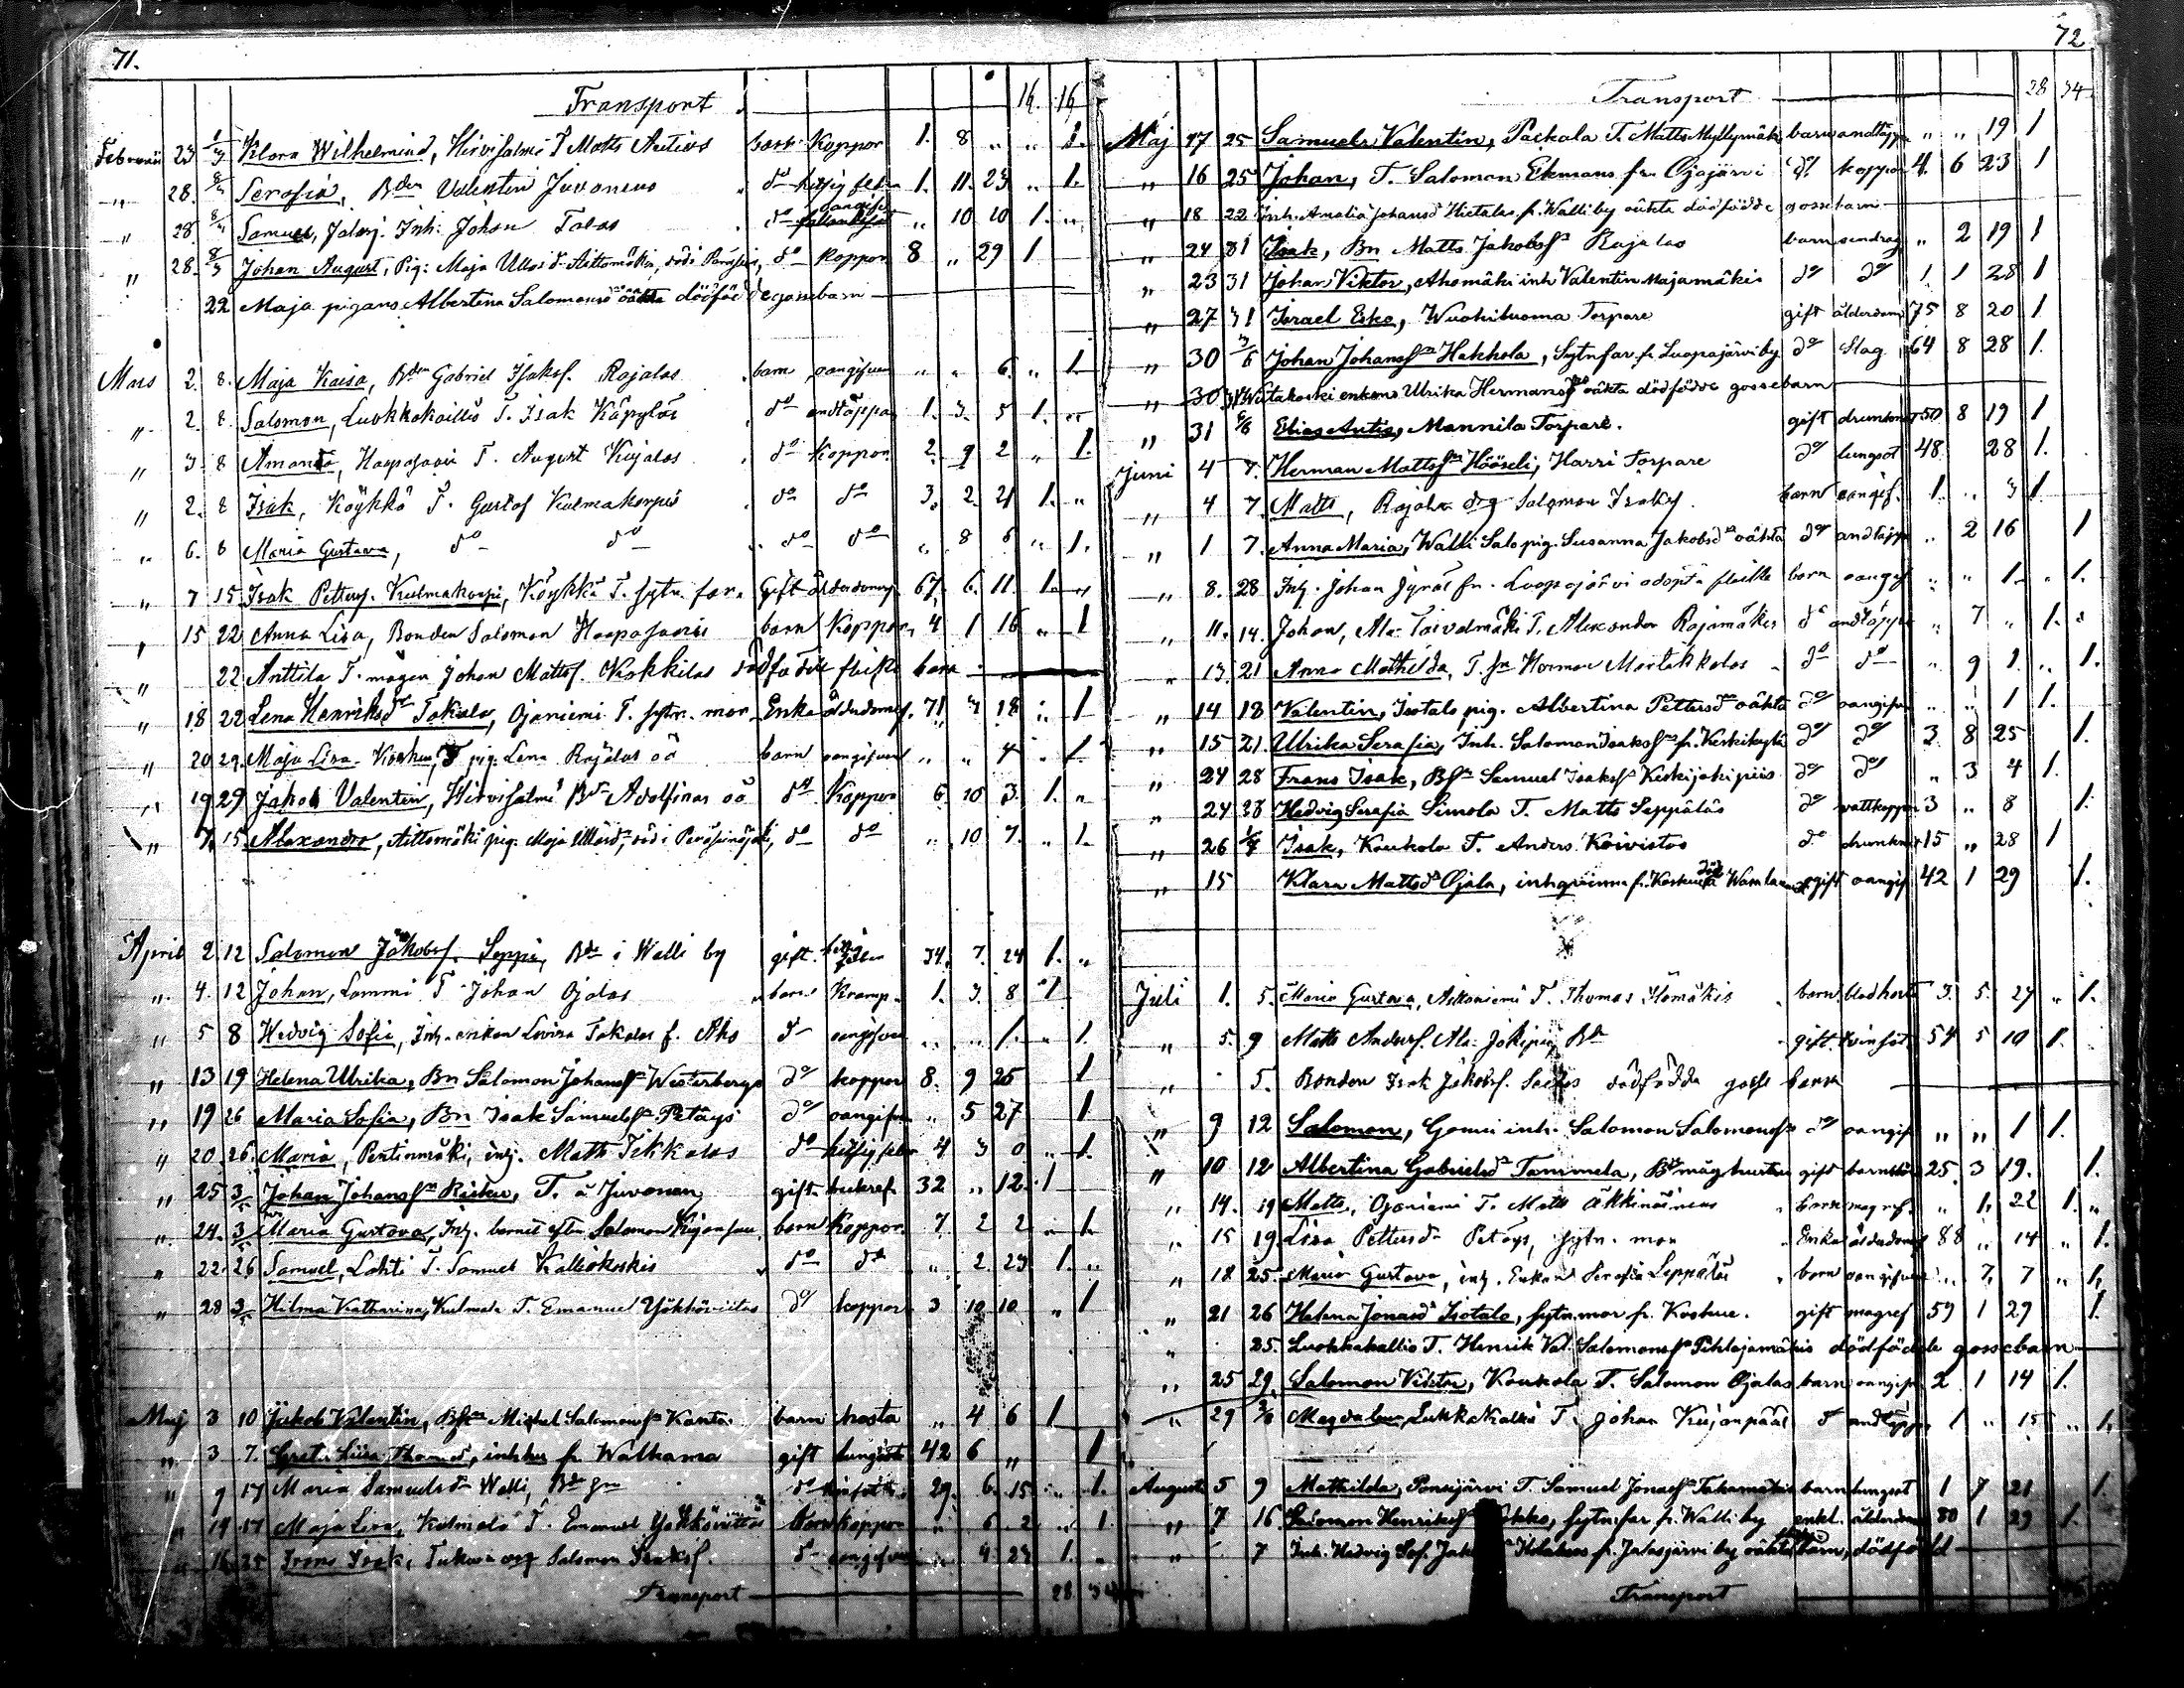 71.
Transport 16 16
Februari 23 1/3 Klara Wilhelmina, Hirvisalmi T. Matts Anttios barn Koppor 1. 8 „ „ 1.
„ 28. 8/3 Serafia, Bdn Valentin Juvonens do hitsig feber 1. 11. 23 „ 1.
„ 28 8/3 Samuel, Jalasj. Inh. Johan Talas do oangifven „ 10 20 1. „
„ 28. 8/3 Johan August, Pig: Maja Ullas d. Aittomäki, död i do Koppor 8 „ 29 1
22 Maja pigans Albertina Salomonsd oäkta dödfödde gossebarn
Mars 2. 8. Maja Kaisa, Bdn Gabriel Isaksf. Rajalas barn oangifven „ „ 6. „ 1.
„ 2. 8. Salomon, Luokkakallio T. Isak Käpyläs do andtäppa 1. 3. 5 1. „
„ 3. 8 Amanda, Haapasaari T. August Kujalas do Koppor 2. 9 2 „ 1.
„ 2. 8 Isak, Köykkä T. Gustaf Kulmakorpis do do 3. 2. 21 1. „
„ 6. 8 Maria Gustava, do do do do „ 8 6 „ 1.
„ 7 15 Isak Pettersf. Kulmakorpi, Köykkä T. sytn. far. Gift ålderdomsf. 67. 6. 11. 1. „
„ 15 22 Anna Lisa, Bonden Salomon Haapasaaris barn Koppor 4 1 16 „ 1
„ 22 Anttila T. mågen Johan Mattsf. Kokkilas dödfödde flicke barn
„ 18 22 Lena Henriksdr Takala, Ojaniemi T. sytn. mor Enka ålderdomsf. 71 3 18 „ 1
„ 20 29. Maja Lisa, Koskue, T pig. Lena Rajalas oä barn oangifven „ „ 4 „ 1
„ 19 29 Jakob Valentin, Hirvisalmi Bdr Adolfinas oä do Koppor 6. 10 3. 1. „
„ 7. 15 Alexander, Aittomäki pig. Maja Ullasd, död i Peräseinäjoki, do do „ 10 7. „ 1.
April 2. 12 Salomon Jakobsf. Seppi, Bde i Walli by gift. 34. 7. 24 1. „
„ 4. 12 Johan, Lammi T Johan Ojalas barn Kramp 1. 3. 8 1
„ 5 8 Hedvig Sofia, Inh. enkan Lovisa Takalas f. Aho do oangifven „ „ 1. „ 1.
„ 13 19 Helena Ulrika, Bn Salomon Johansson Westerbergs do koppor 8. 9 25 1
„ 19 26 Maria Sofia, Bn Isak Samuelsson Petäys do oangifven „ 5 27 1
„ 20. 26. Maria, Pentinmäki, inh. Matts Ikkalas do hitsig feber 4 3 0 „ 1.
„ 25 3/5 Johan Johansson Risku, T. å Juvonen gift bukref. 32 „ 12. 1
„ 24. 3/5 Maria Gustava, Inh. barnet efter Salomon Kujanpää barn Koppor. 7 2 2 „ 1.
„ 22. 26 Samuel, Lahti T. Samuel Kalliokoskis do do „ 2. 23 1. „
„ 28 3/5 Hilma Katharina, Kulmala T. Emanuel Yökköviitas do koppor 3 10 10 „ 1
Maj 3 10 Jakob Valentin, Bson Michel Salomonsson Kantos barn hosta „ 4 6 1
„ 3 7. Greta Lisa Thomasd, inhhu fr. Walkama gift lungsot 42 6 „ 1
„ 9 17 Maria Samuelsdr Walli, Bde hu do 29. 6. 15. „ 1.
„ 14 17 Maja Lisa, Kulmala T. Emanuel Yökköviitas barn koppor „ 6. 2 „ 1
„ 16 25 Frans Isak, Salomon Isaksf. do oangifven „ 4 23 1. „
Transport 28 34
72
Transport 28 34
Maj 17 25 Samuel Valentin, Packala T. Matts Myllymäki barn andtäppa „ „ 19 1
„ 16 25 Johan, T. Salomon Ekmans fr. Ojajärvi do koppor 4. 6 23 1
„ 18 22 Inh. Amalia Johansd Hietalas fr. Walli by oäkta dödfödde gossebarn
„ 24 31 Isak, Bn Matts Jakobsson Rajalas barn sendrag „ 2 19 1
„ 23 31 Johan Viktor, Ahomäki inh Valentin Majamäkis do do 1 1 28 1
„ 27 31 Israel Esko, Wuohiluoma Torpare gift ålderdom 75 8 20 1.
„ 30 3/6 Johan Johansson Hakkola, Sytnfar fr. Luopajärvi by do Slag. 64 8 28 1.
„ 30 31 enkans Ulrika Hermansd oäkta dödfödde gossebarn
„ 31 6/6 Elias Antio, Mannila Torpare. gift drunknat 50 8 19 1
Juni 4 7. Herman Mattsson Hööseli, Harri Torpare do lungsot 48. 28 1.
„ 4 7. Matts, Rajala Salomon Isaksf. barn oangif. 1. „ 3 1
„ 1 7. Anna Maria, Walli Salo pig. Susanna Jakobsdr oäkta do andtäppa „ 2 16 1
„ 8. 28 Inh. Johan Jyräs fr. Luopajärvi odöpta flicka barn oangif „ „ 1. „ 1.
„ 11. 14. Johan, Ala-Taivalmäki T. Alexander Rajamäkis do andtäppa „ 7 „ 1. „
„ 13. 21 Anna Mathilda, T. sn Herman Martikkalas do do „ 9 1. „ 1.
„ 14 18 Valentin, Isotalo pig. Albertina Pettersdr oäkta do oangifven „ „ 1 1.
„ 15 21. Ulrika Serafia, Inh. Salomon Isaksson fr. Keskikylä do do 3. 8 25 1.
„ 24 28 Frans Isak, Bson Samuel Isaksson Keskijokipiis do do „ 3 4 1.
„ 24 28 Hedvig Serafia Simola T. Matts Seppäläs do vattkoppor 3 „ 8 1.
„ 26 1/7 Isak, Koukola T. Anders Koivistos do drunknat 15 „ 28 1
„ 15 Klara Mattsdr Ojala, inhqvinna fr. Koskue död i Wasa ogift oangif 42 1 29 1.
Juli 1. 5. Maria Gustava, Askoniemi T. Thomas Ylömäkis barn blodhosta 3. 5. 27 „ 1.
„ 5. 9 Matts Andersf. Ala-Jokipii, Bde gift. tvinsot 54 5 10 1.
„ 5. Bonden Isak Jakobsf. dödfödda gosse barn
„ 9 12 Salomon, inh. Salomon Salomonsson do oangif „ „ 1 1.
„ 10 12 Albertina Gabrielsdr Tammela, Bdmåghustru gift barnsbörd 25. 3 19. 1.
„ 14. 19 Matts, Ojaniemi T. Matts Äkkinäinens barn magref. „ 1. 22 1. „
„ 15 19. Lisa Pettersdr Petäys, sytn. mor Enka ålderdomsf 88 „ 14 „ 1.
„ 18 25. Maria Gustava, inh. Enkan Serafia Seppäläs barn oangifven „ 7. 7 „ 1.
„ 21 26 Helena Jonasdr Isotalo, sytn.mor fr. Koskue. gift magref 59 1 29 1.
„ 25. Luokkakallio T. Henrik Val. Salomonsson Pihlajamäkis dödfödde gossebarn
„ 25 29. Salomon Viktor, Koukola T. Salomon Ojalas barn oangifven 2 1 14 1.
„ 29 2/8 Magdalena, Lukkakallio T. Johan Kujanpääs do andtäppa 1 „ 15 „ 1.
Augusti 5 9 Mathilda, Ponsijärvi T. Samuel Jonasson Takamäkis barn lungsot 1 7 21 1.
„ 7 16. Salomon Henriksson Kokko, sytnfar fr. Walli by enkl. ålderdom 80 1 29 1.
„ 7 Inh. Hedvig Sof. fr. Jalasjärvi by oäkta barn, dödfödd
Transport